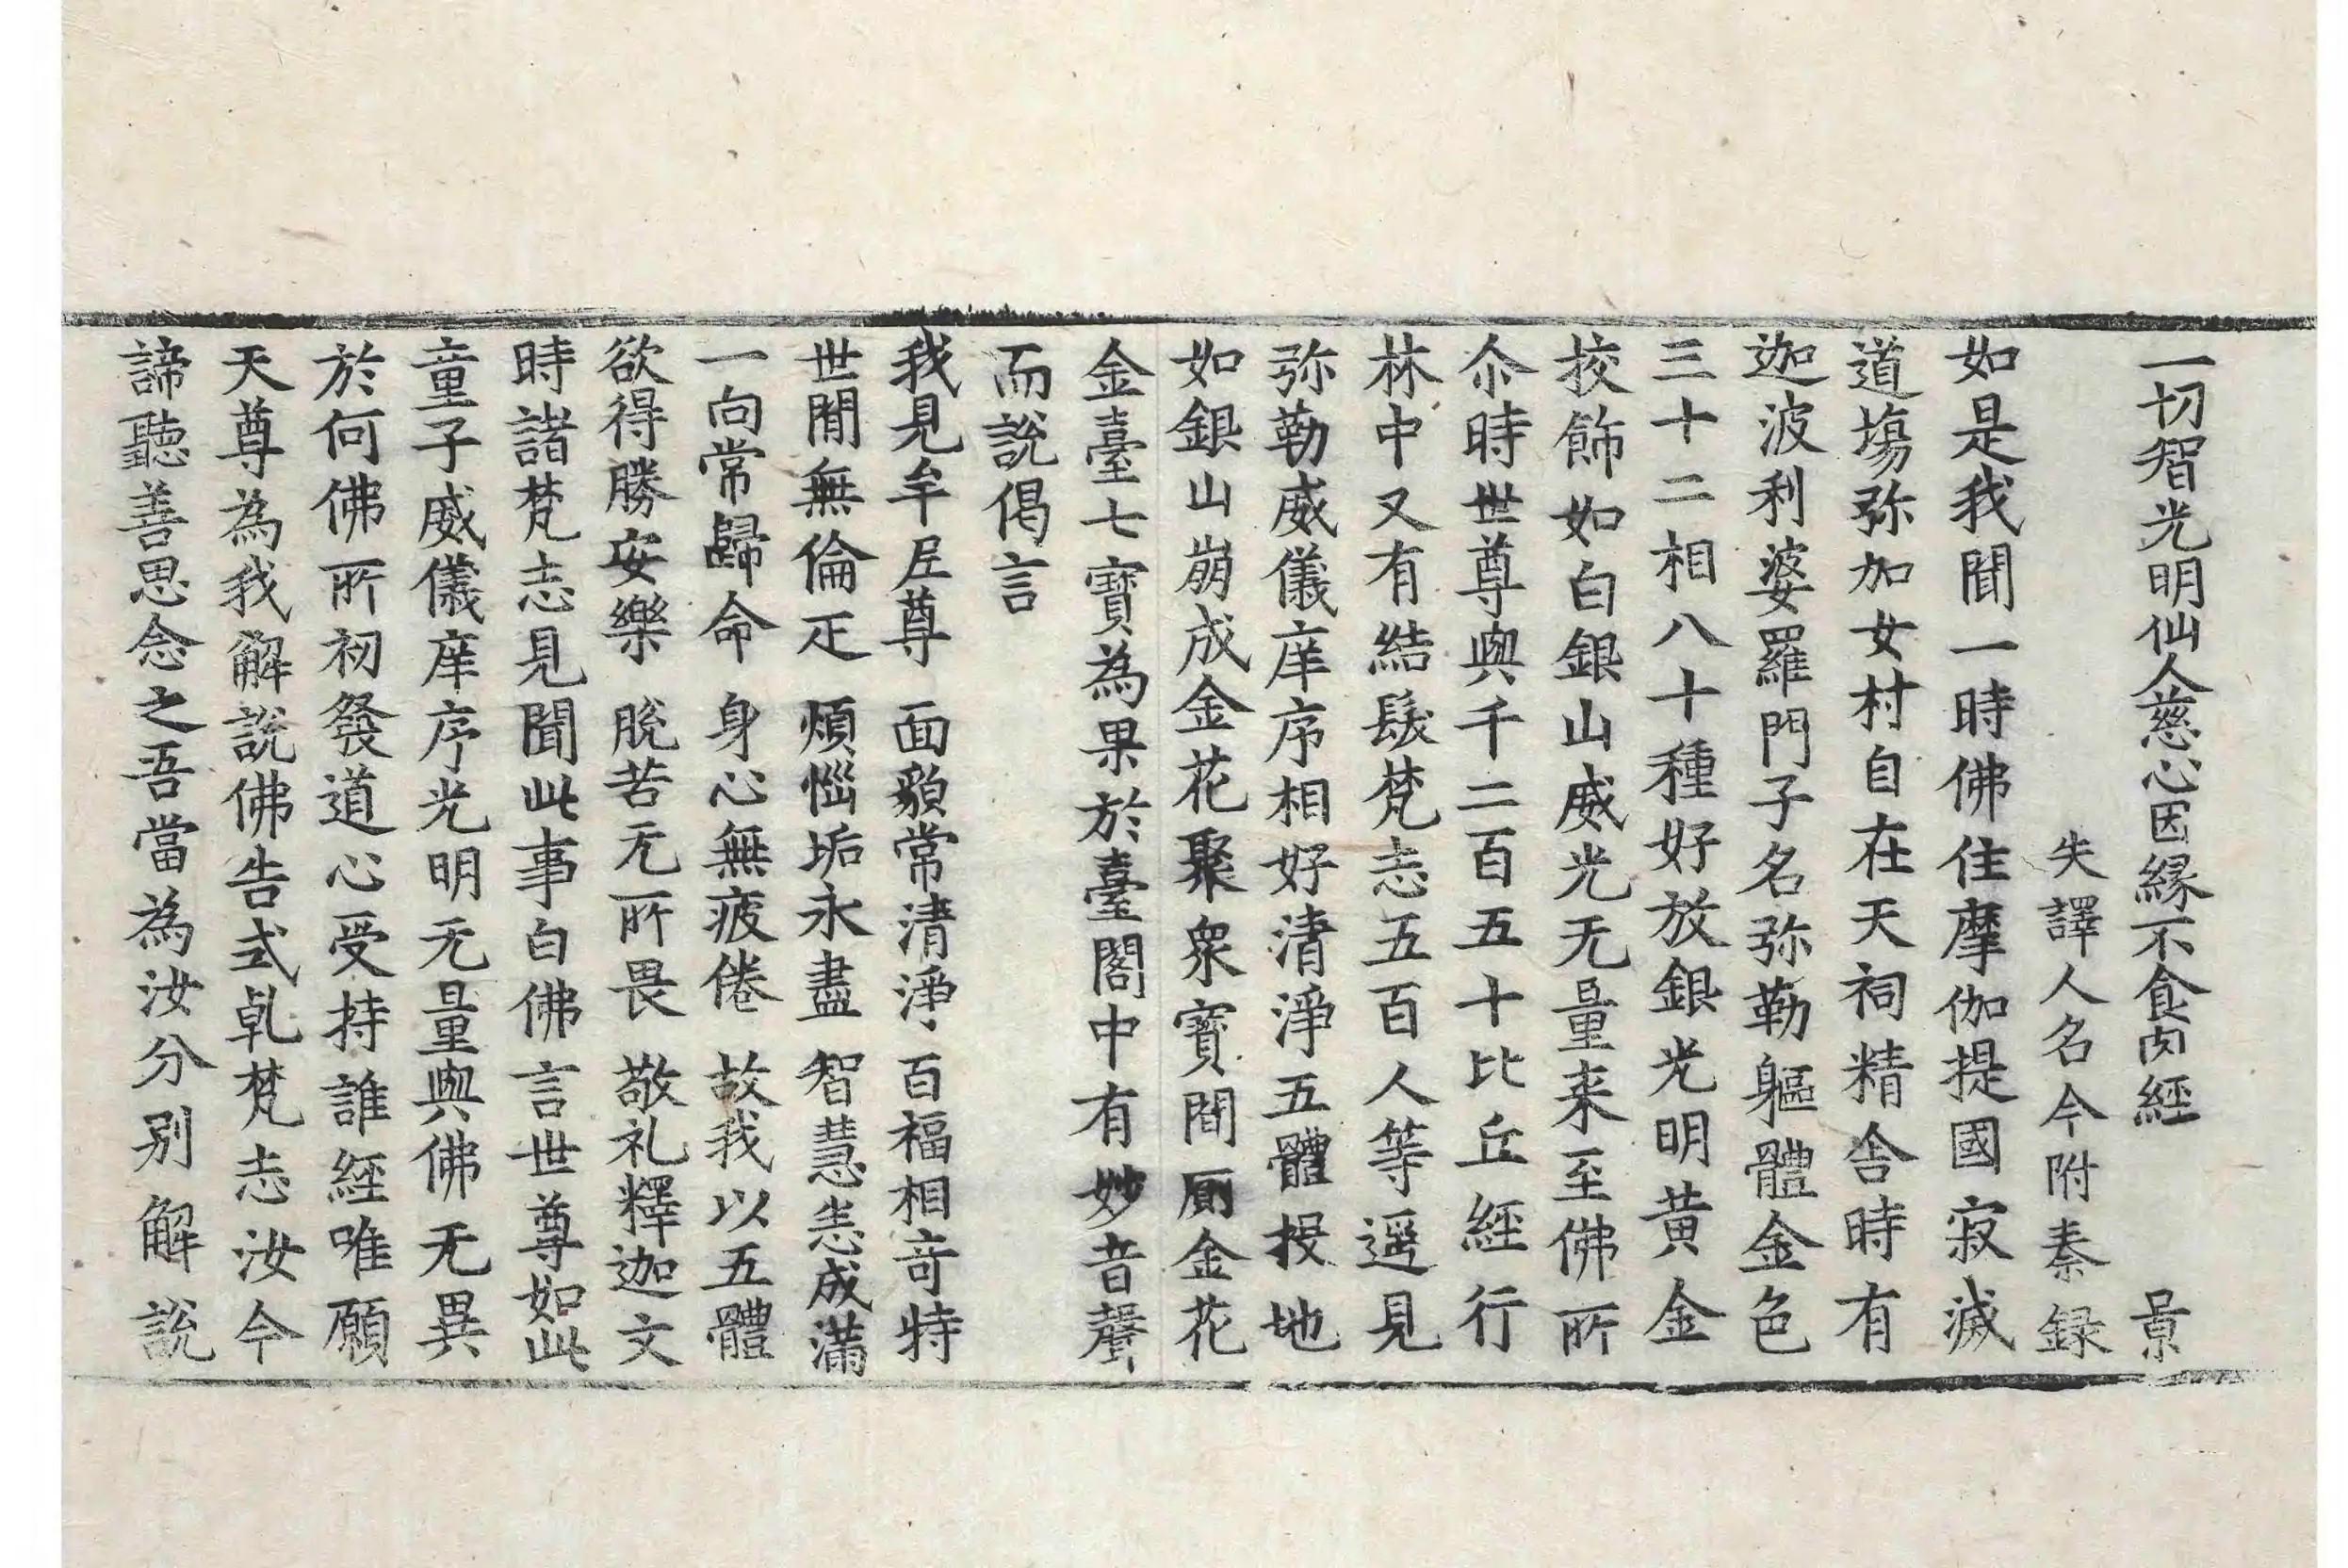 一切智光明仙人慈心因緣不食肉經 景
失譯人名今附秦録
如是我聞一時佛住摩伽提國寂滅
道塲弥加女村自在天祠精舍時有
迦波利婆羅門子名弥勒軀體金色
三十二相八十種好放銀光明黃金
挍飾如白銀山威光无量来至佛所
尒時世尊與千二百五十比丘經行
林中又有結髮梵志五百人等遥見
弥勒威儀庠序相好清淨五體投地
如銀山崩成金花聚衆寶閒厠金花
金臺七寶為果於臺閣中有妙音聲
而說偈言
我見牟尼尊 面貌常清淨 百福相奇特
世閒無倫疋 煩惱垢永盡 智慧悉成滿
一向常歸命 身心無疲倦 故我以五體
欲得勝安樂 脫苦无所畏 敬礼釋迦文
時諸梵志見聞此事白佛言世尊如此
童子威儀庠序光明无量與佛无異
於何佛所初發道心受持誰經唯願
天尊為我解說佛告式乹梵志汝今
諦聽善思念之吾當為汝分別解說